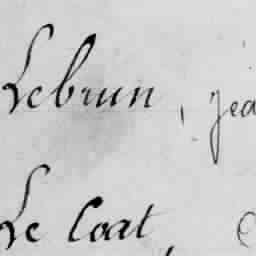 Lebrun, jea
Le Coat,